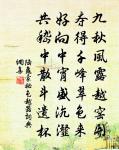 九秋風露越窯開
奪得千峰翠色來
好向中宵盛沆瀣
共嵇中散鬥遺杯
陸龜蒙秘色越器詞典
網集